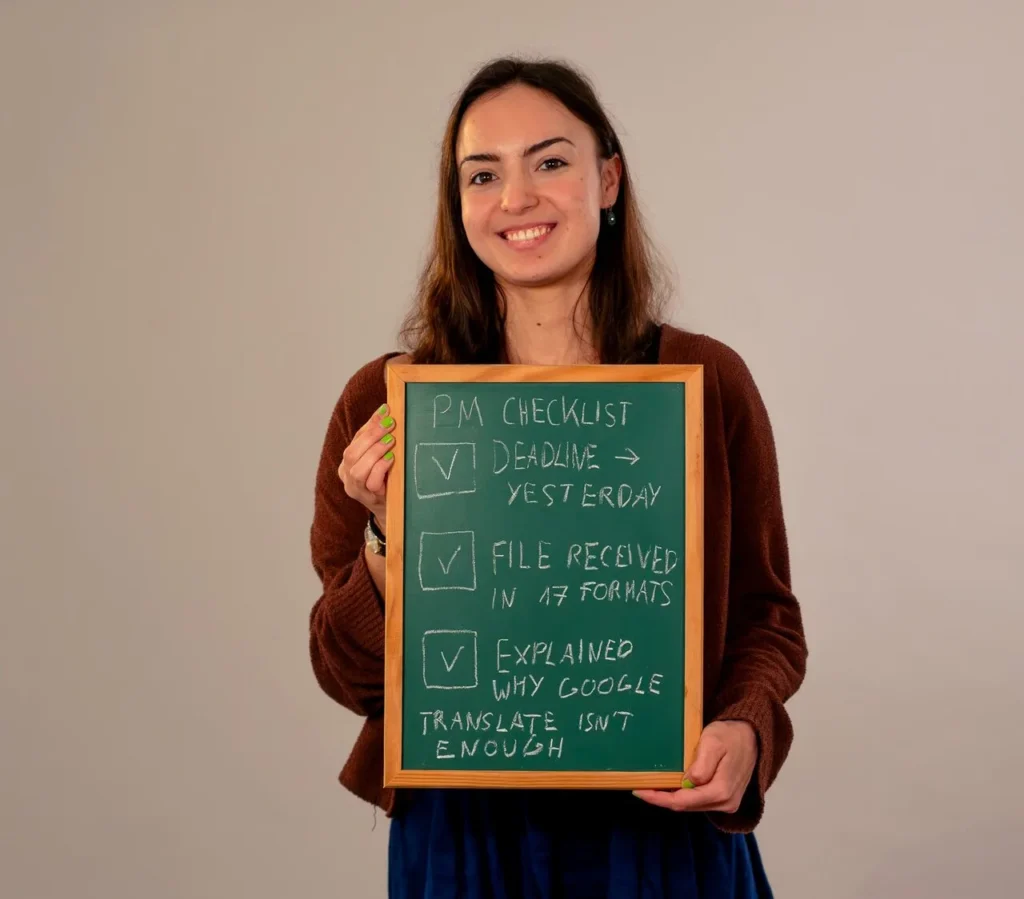 PM CHECKLIST
DEADLINE →
YESTERDAY
FILE RECEIVED
IN 17 FORMATS
EXPLAINED
WHY GOOGLE
TRANSLATE ISN'T
ENOUGH